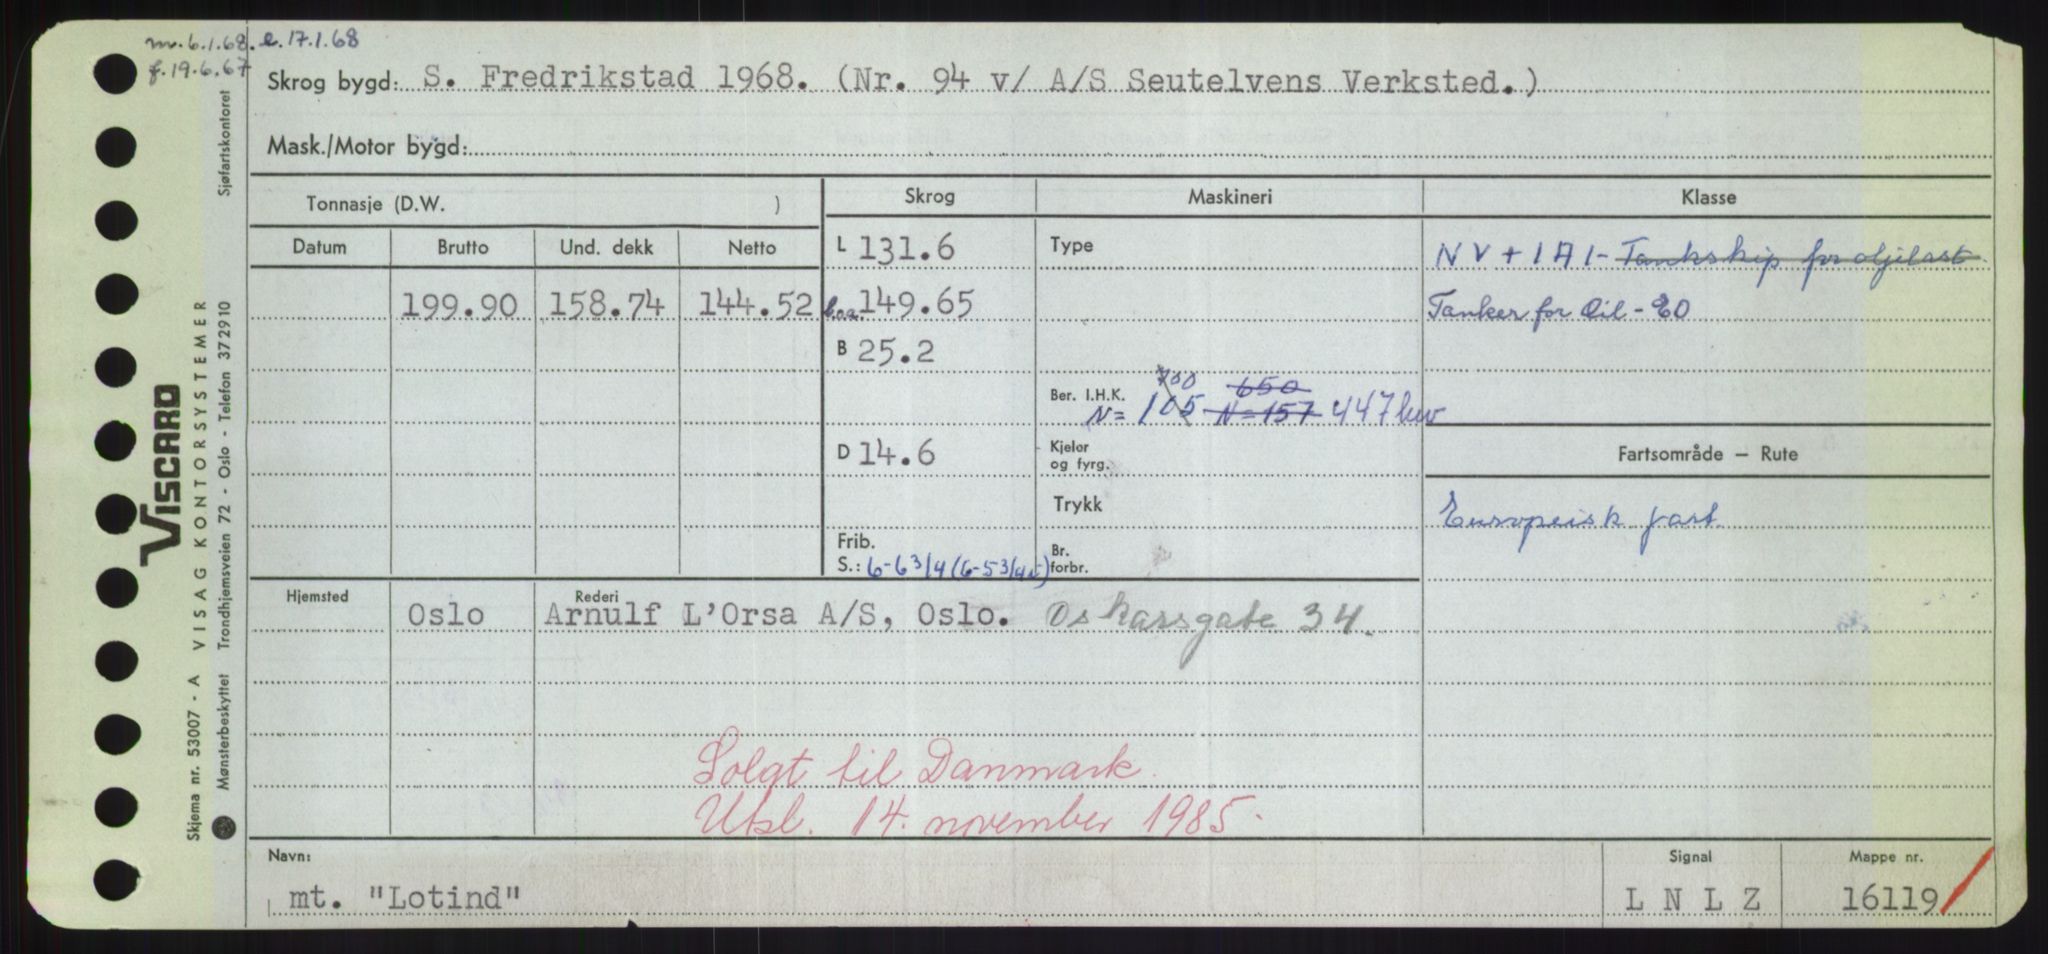 m. 6.1.68. e. 17.1.68
f. 19.6.67
Skrog bygd: S. Fredrikstad 1968. (Nr. 94 v/ A/S Seutelvens Verksted.)
Mask./Motor bygd:
Tonnasje (D.W. )
Skrog Maskineri Klasse
Datum Brutto Und. dekk Netto
L 131.6 Type NV + 1A1 - Tankskip for oljelast
199.90 158.74 144.52 l.o.a. 149.65 Tanker for Oil - EO
B 25.2
700 650
Ber. I.H.K. N = 105 N = 157 447 kw
D 14.6 Kjeler og fyrg.
Fartsområde — Rute
Trykk
Europeisk fart
Frib.
S.: 6-6 3/4 (6-5 3/4 ) Br. forbr.
Hjemsted Oslo Rederi Arnulf L'Orsa A/S, Oslo. Oskarsgate 34.
Solgt til Danmark.
Utsl. 14. november 1985.
Navn: Signal Mappe nr.
mt. "Lotind" L N L Z 16119
VISCARD
Skjema nr. 53007 - A VISAG KONTORSYSTEMER
Mønsterbeskyttet Trondhjemsveien 72 - Oslo - Telefon 37 29 10 Sjøfartskontoret